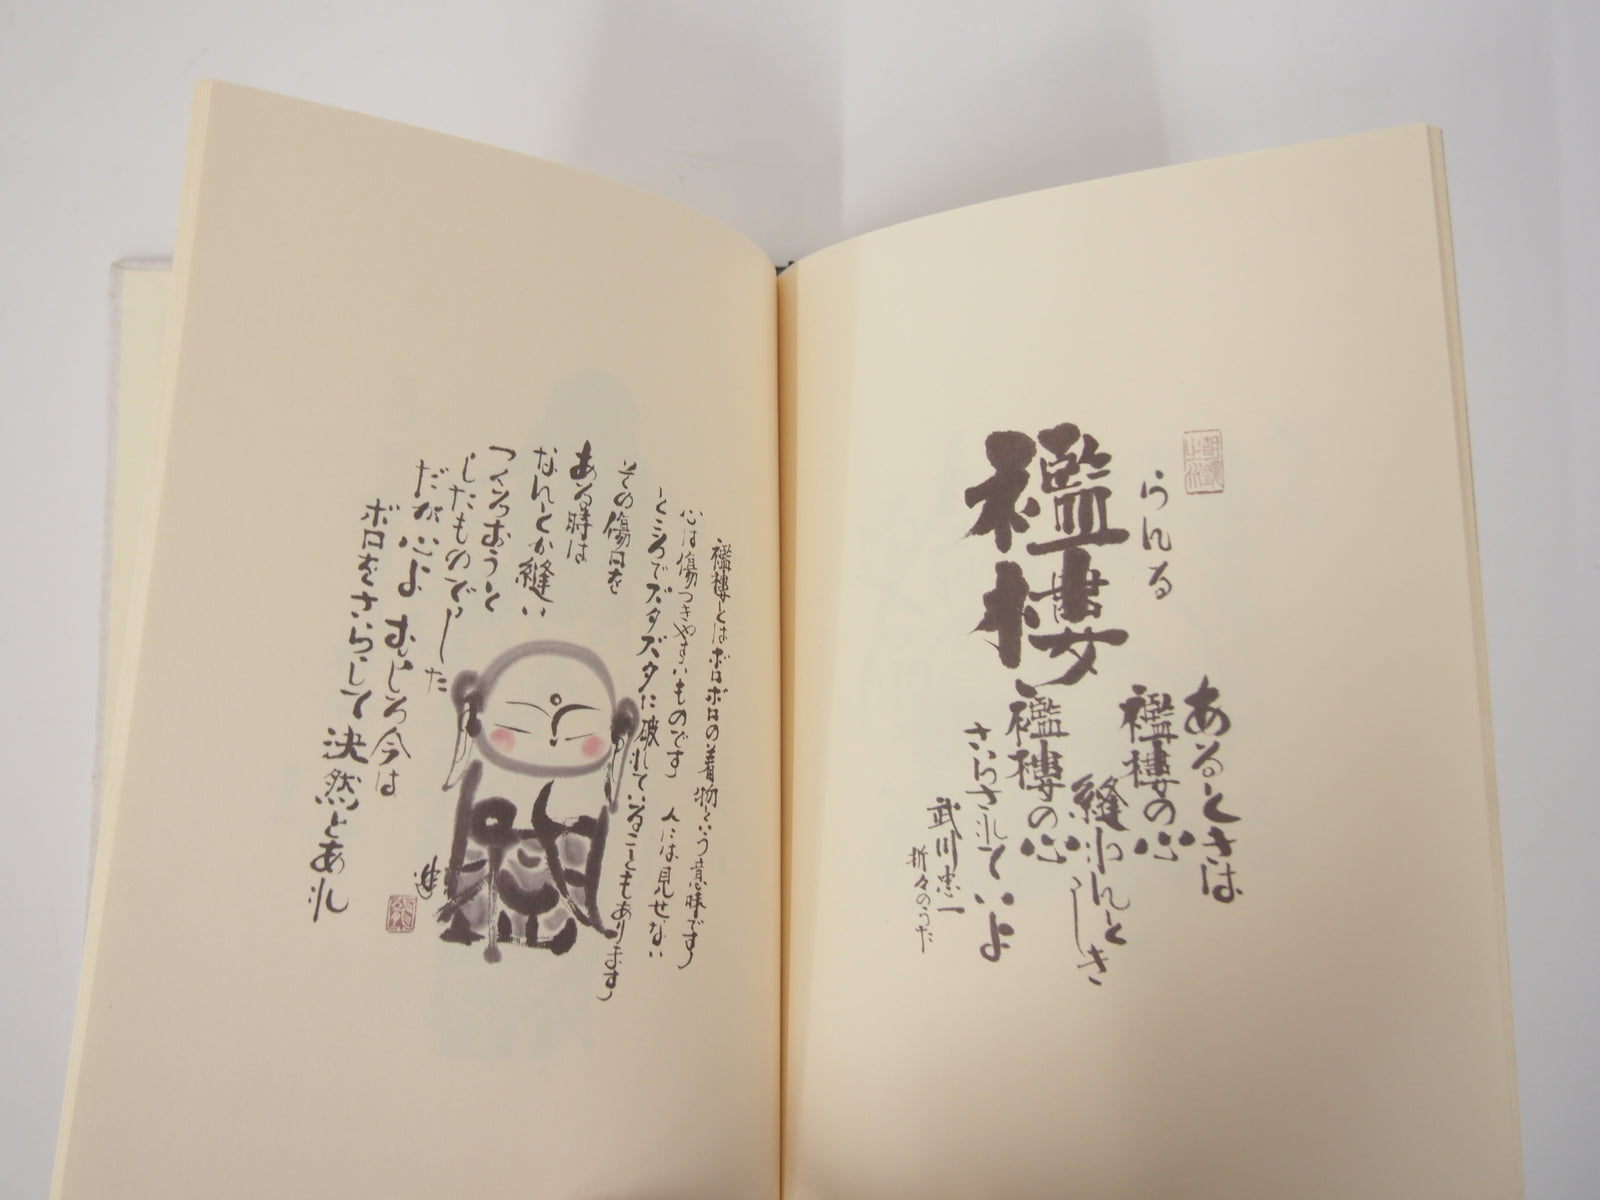 らんる
襤褸
あるときは
襤褸の心
縫われんとしき
襤褸の心
さらされていよ
武川忠一
折々のうた
襤褸とはボロボロの着物という意味です
心は傷つきやすいものです 人には見せない
ところでズタズタに破れていることもあります
その傷口を
ある時は
なんとか縫い
つくろおうと
したものでした
だが心よ むしろ今は
ボロをさらして決然とあれ